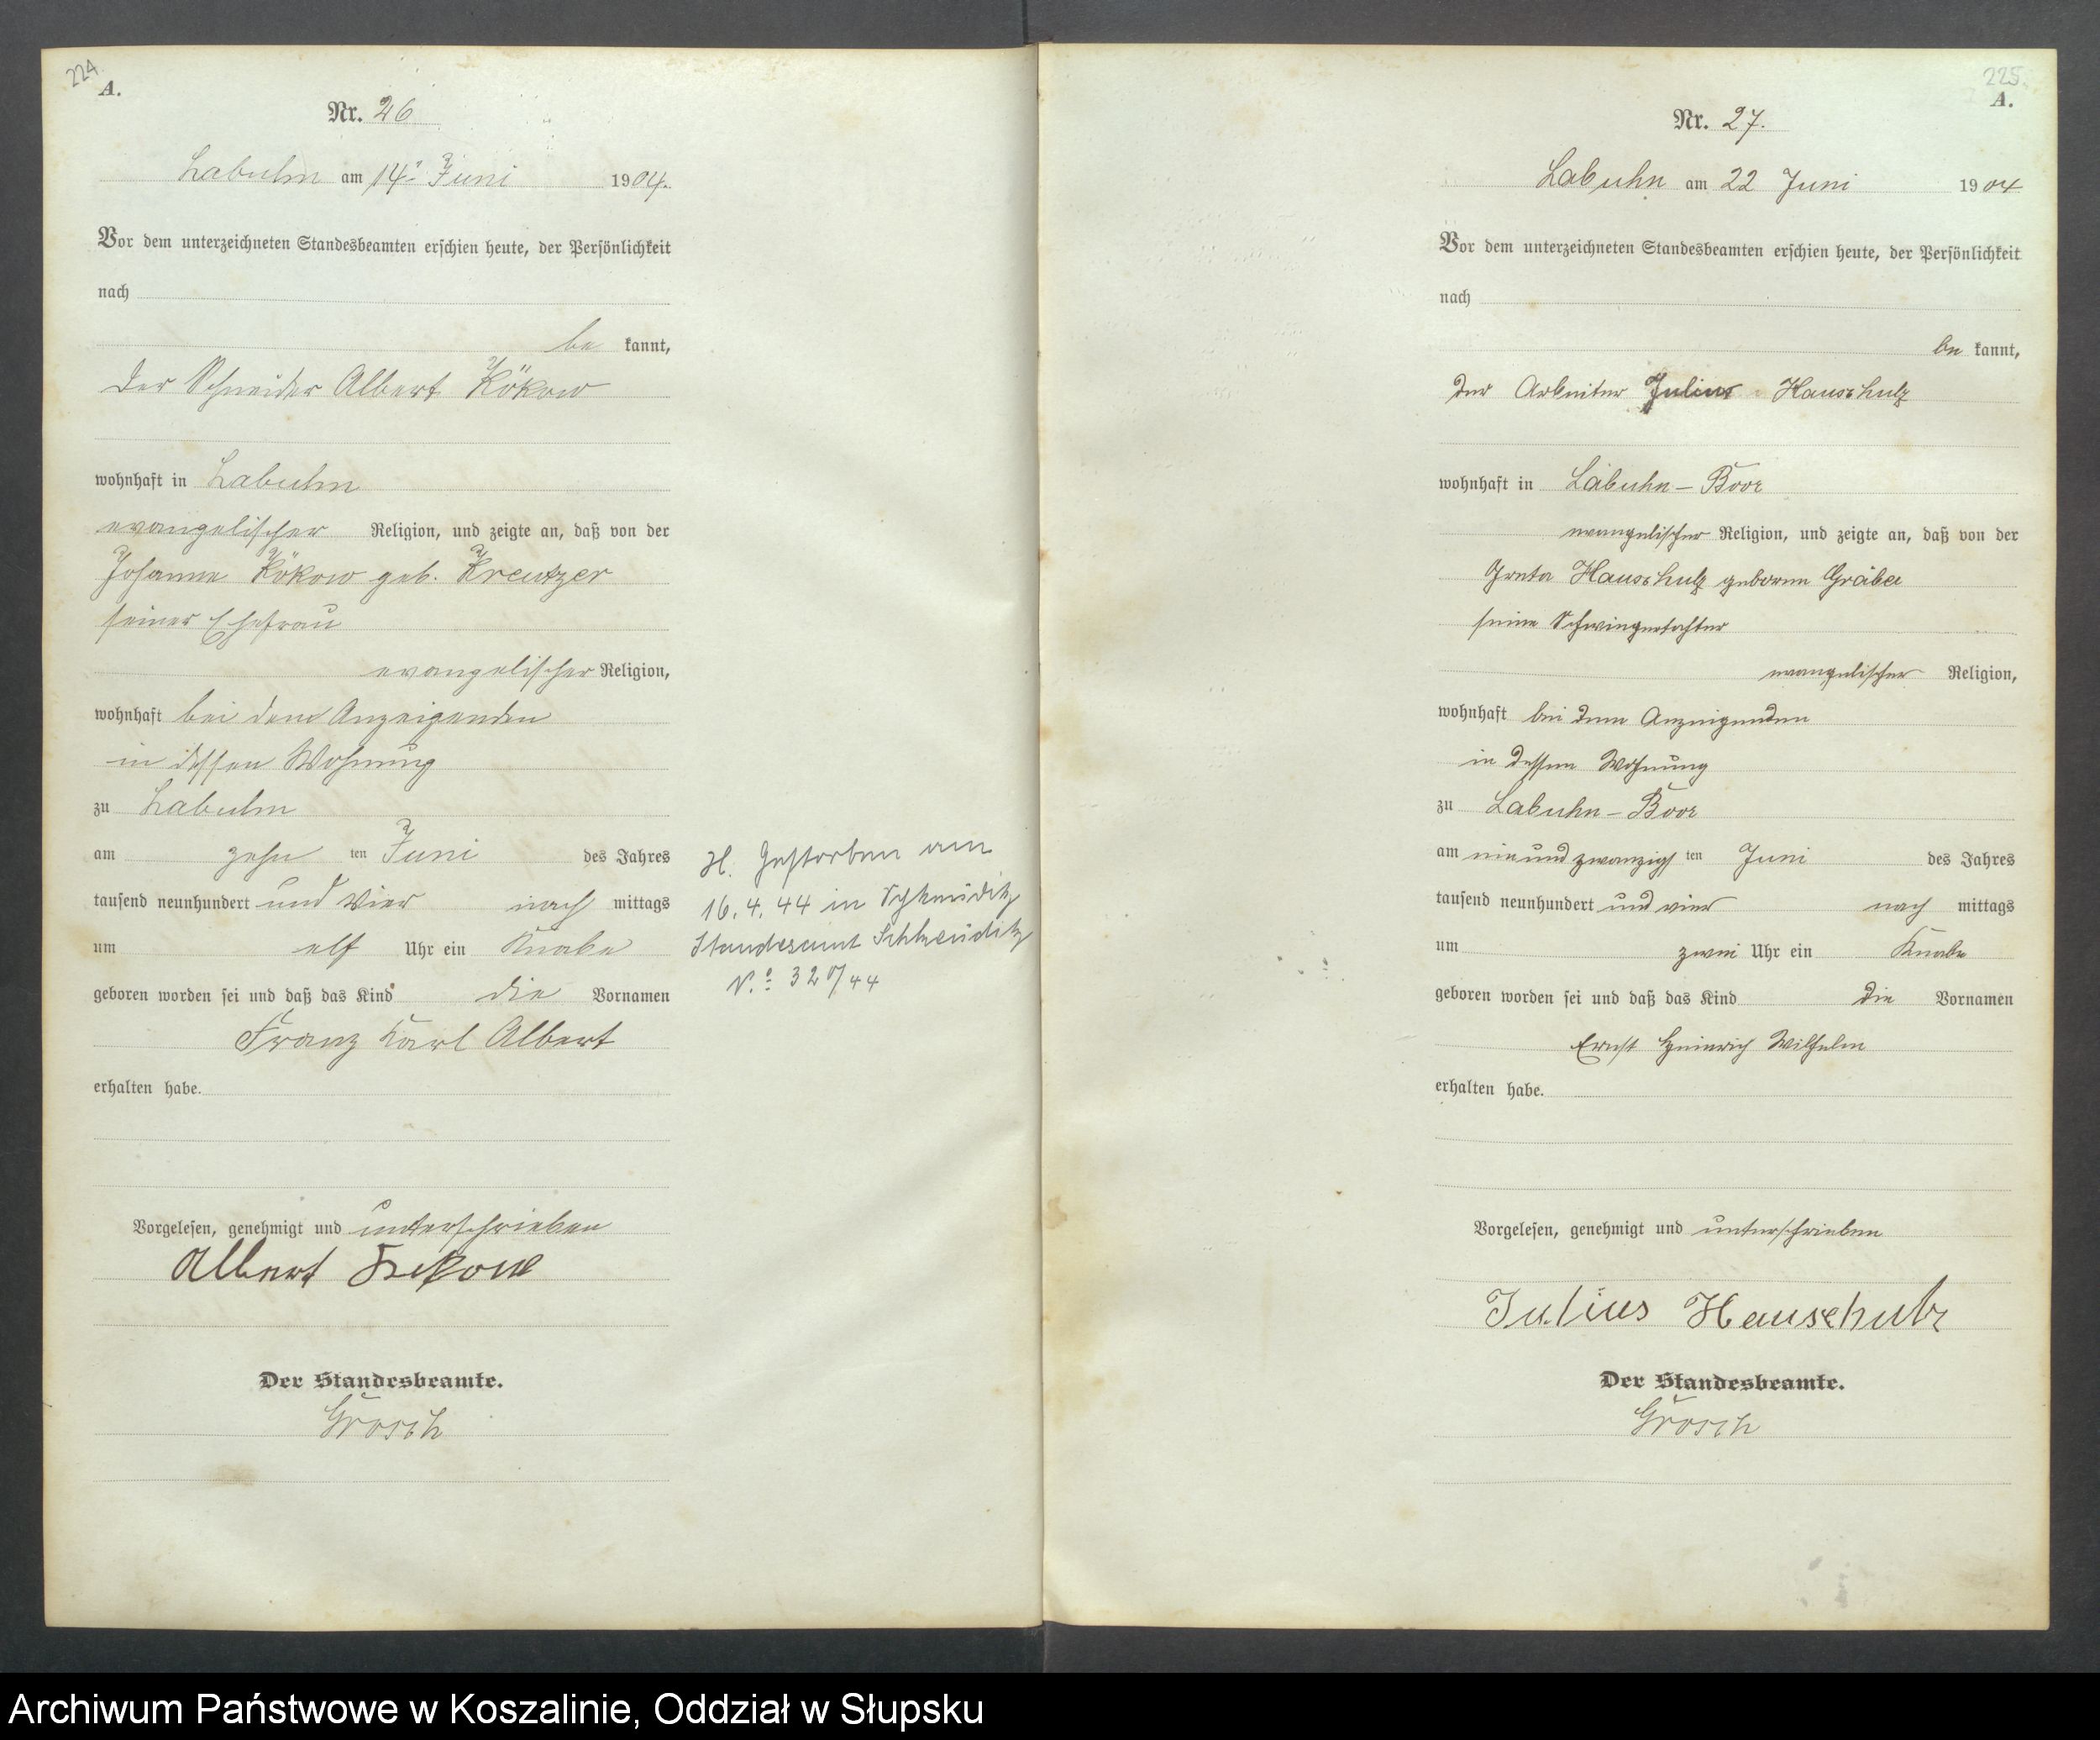 224
A.
Nr. 26
Labuhn am 14. Juni 1904.
Vor dem unterzeichneten Standesbeamten erschien heute, der Persönlichkeit
nach
be kannt,
der Schneider Albert Kökow
wohnhaft in Labuhn
evangelischer Religion, und zeigte an, daß von der
Johanna Kökow geb. Kreutzer
seiner Ehefrau
evangelischer Religion,
wohnhaft bei dem Anzeigenden
in dessen Wohnung
zu Labuhn
am zehn ten Juni des Jahres
tausend neunhundert und vier nach mittags
um elf Uhr ein Knabe
geboren worden sei und daß das Kind die Vornamen
Franz Karl Albert
erhalten habe.
Vorgelesen, genehmigt und unterschrieben
Albert
Der Standesbeamte.
Grosch
H. Gestorben am
16.4.44 in Schkeuditz
Standesamt Schkeuditz
N.º
225
A.
Nr. 27.
Labuhn am 22 Juni 1904
Vor dem unterzeichneten Standesbeamten erschien heute, der Persönlichkeit
nach
be kannt,
der Arbeiter Julius Hauschulz
wohnhaft in Labuhn – Boor
evangelischer Religion, und zeigte an, daß von der
Hauschulz geborne
seine Schwiegertochter
evangelischer Religion,
wohnhaft bei dem Anzeigenden
in dessen Wohnung
zu Labuhn – Boor
am ein und zwanzigs ten Juni des Jahres
tausend neunhundert und vier nach mittags
um zwei Uhr ein Knabe
geboren worden sei und daß das Kind die Vornamen
Ernst Heinrich Wilhelm
erhalten habe.
Vorgelesen, genehmigt und unterschrieben
Julius Hauschulz
Der Standesbeamte.
Grosch
Archiwum Państwowe w Koszalinie, Oddział w Słupsku